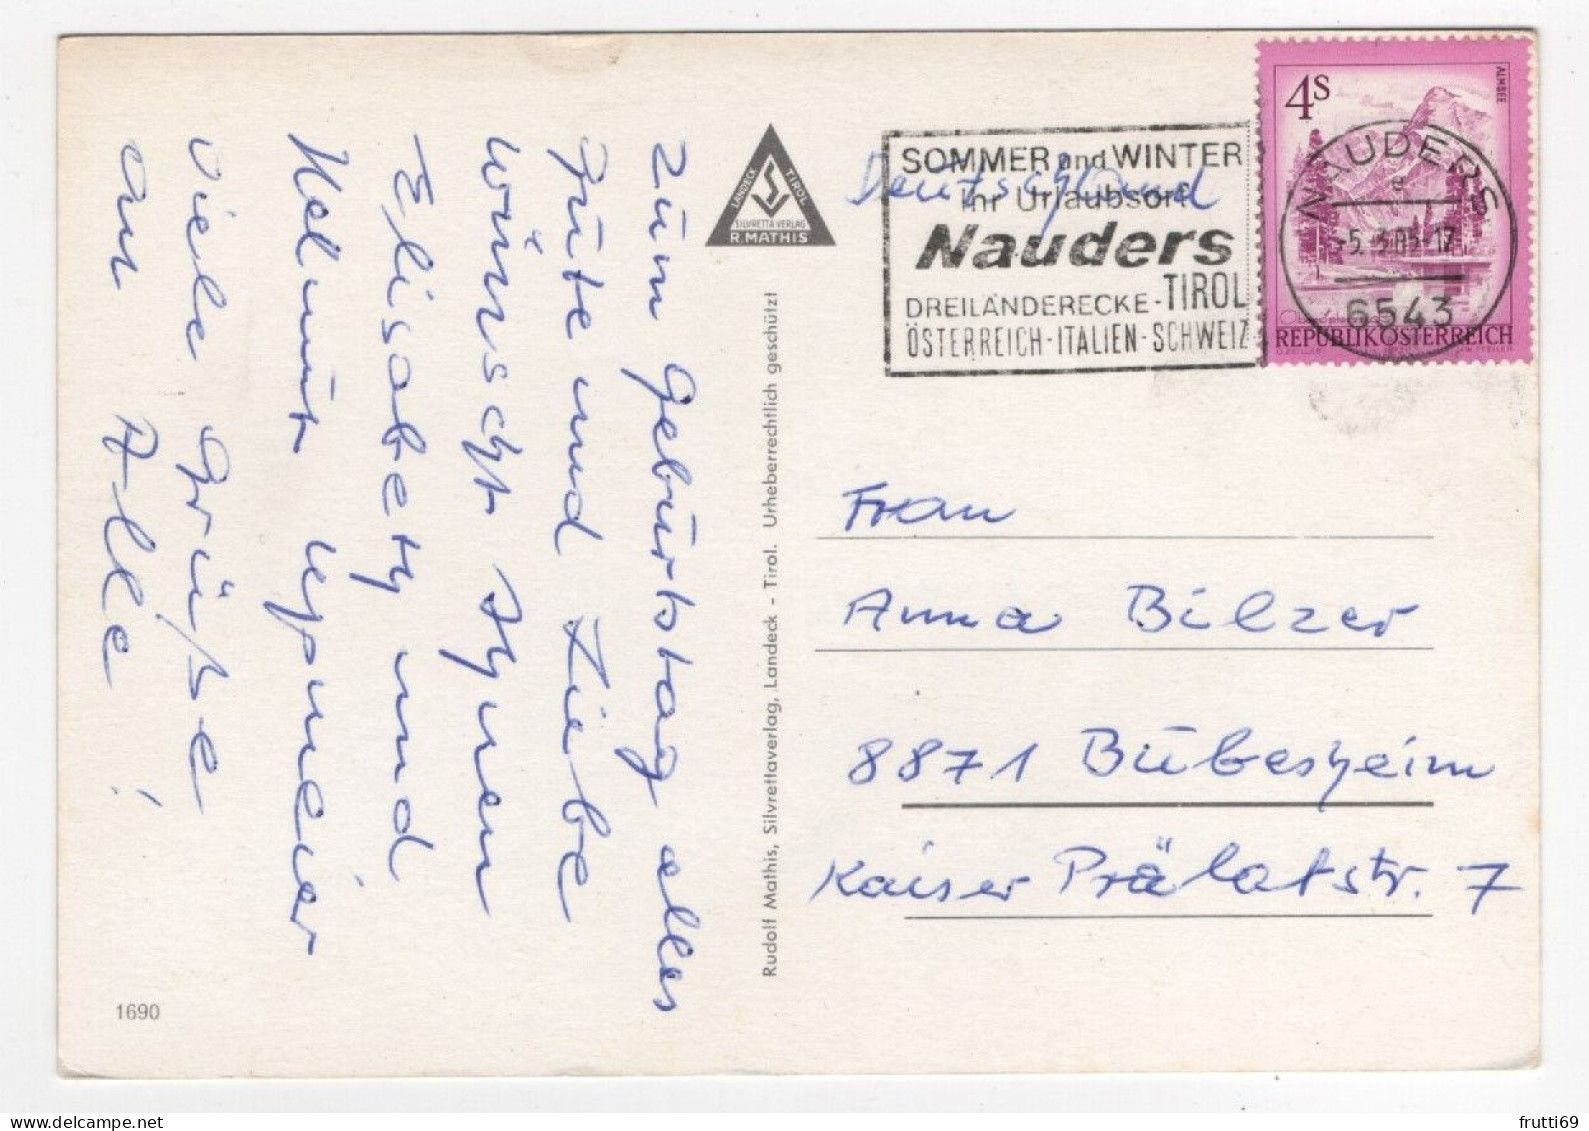 zum Geburtstag alles
Gute und Liebe
wünscht Ihnen
Elisabeth und
Helmut
viele Grüße
an Alle!
1690
LANDECK TIROL
SILVRETTA VERLAG
R. MATHIS
Rudolf Mathis, Silvrettaverlag, Landeck - Tirol. Urheberrechtlich geschützt
Deutschland
SOMMER und WINTER
Ihr Urlaubsort
Nauders
DREILÄNDERECKE - TIROL
ÖSTERREICH - ITALIEN - SCHWEIZ
4S
ALMSEE
NAUDERS
6543
REPUBLIK ÖSTERREICH
Frau
Anna Bilzer
8871 Bübesheim
Kaiser Prälatstr. 7
frutti69